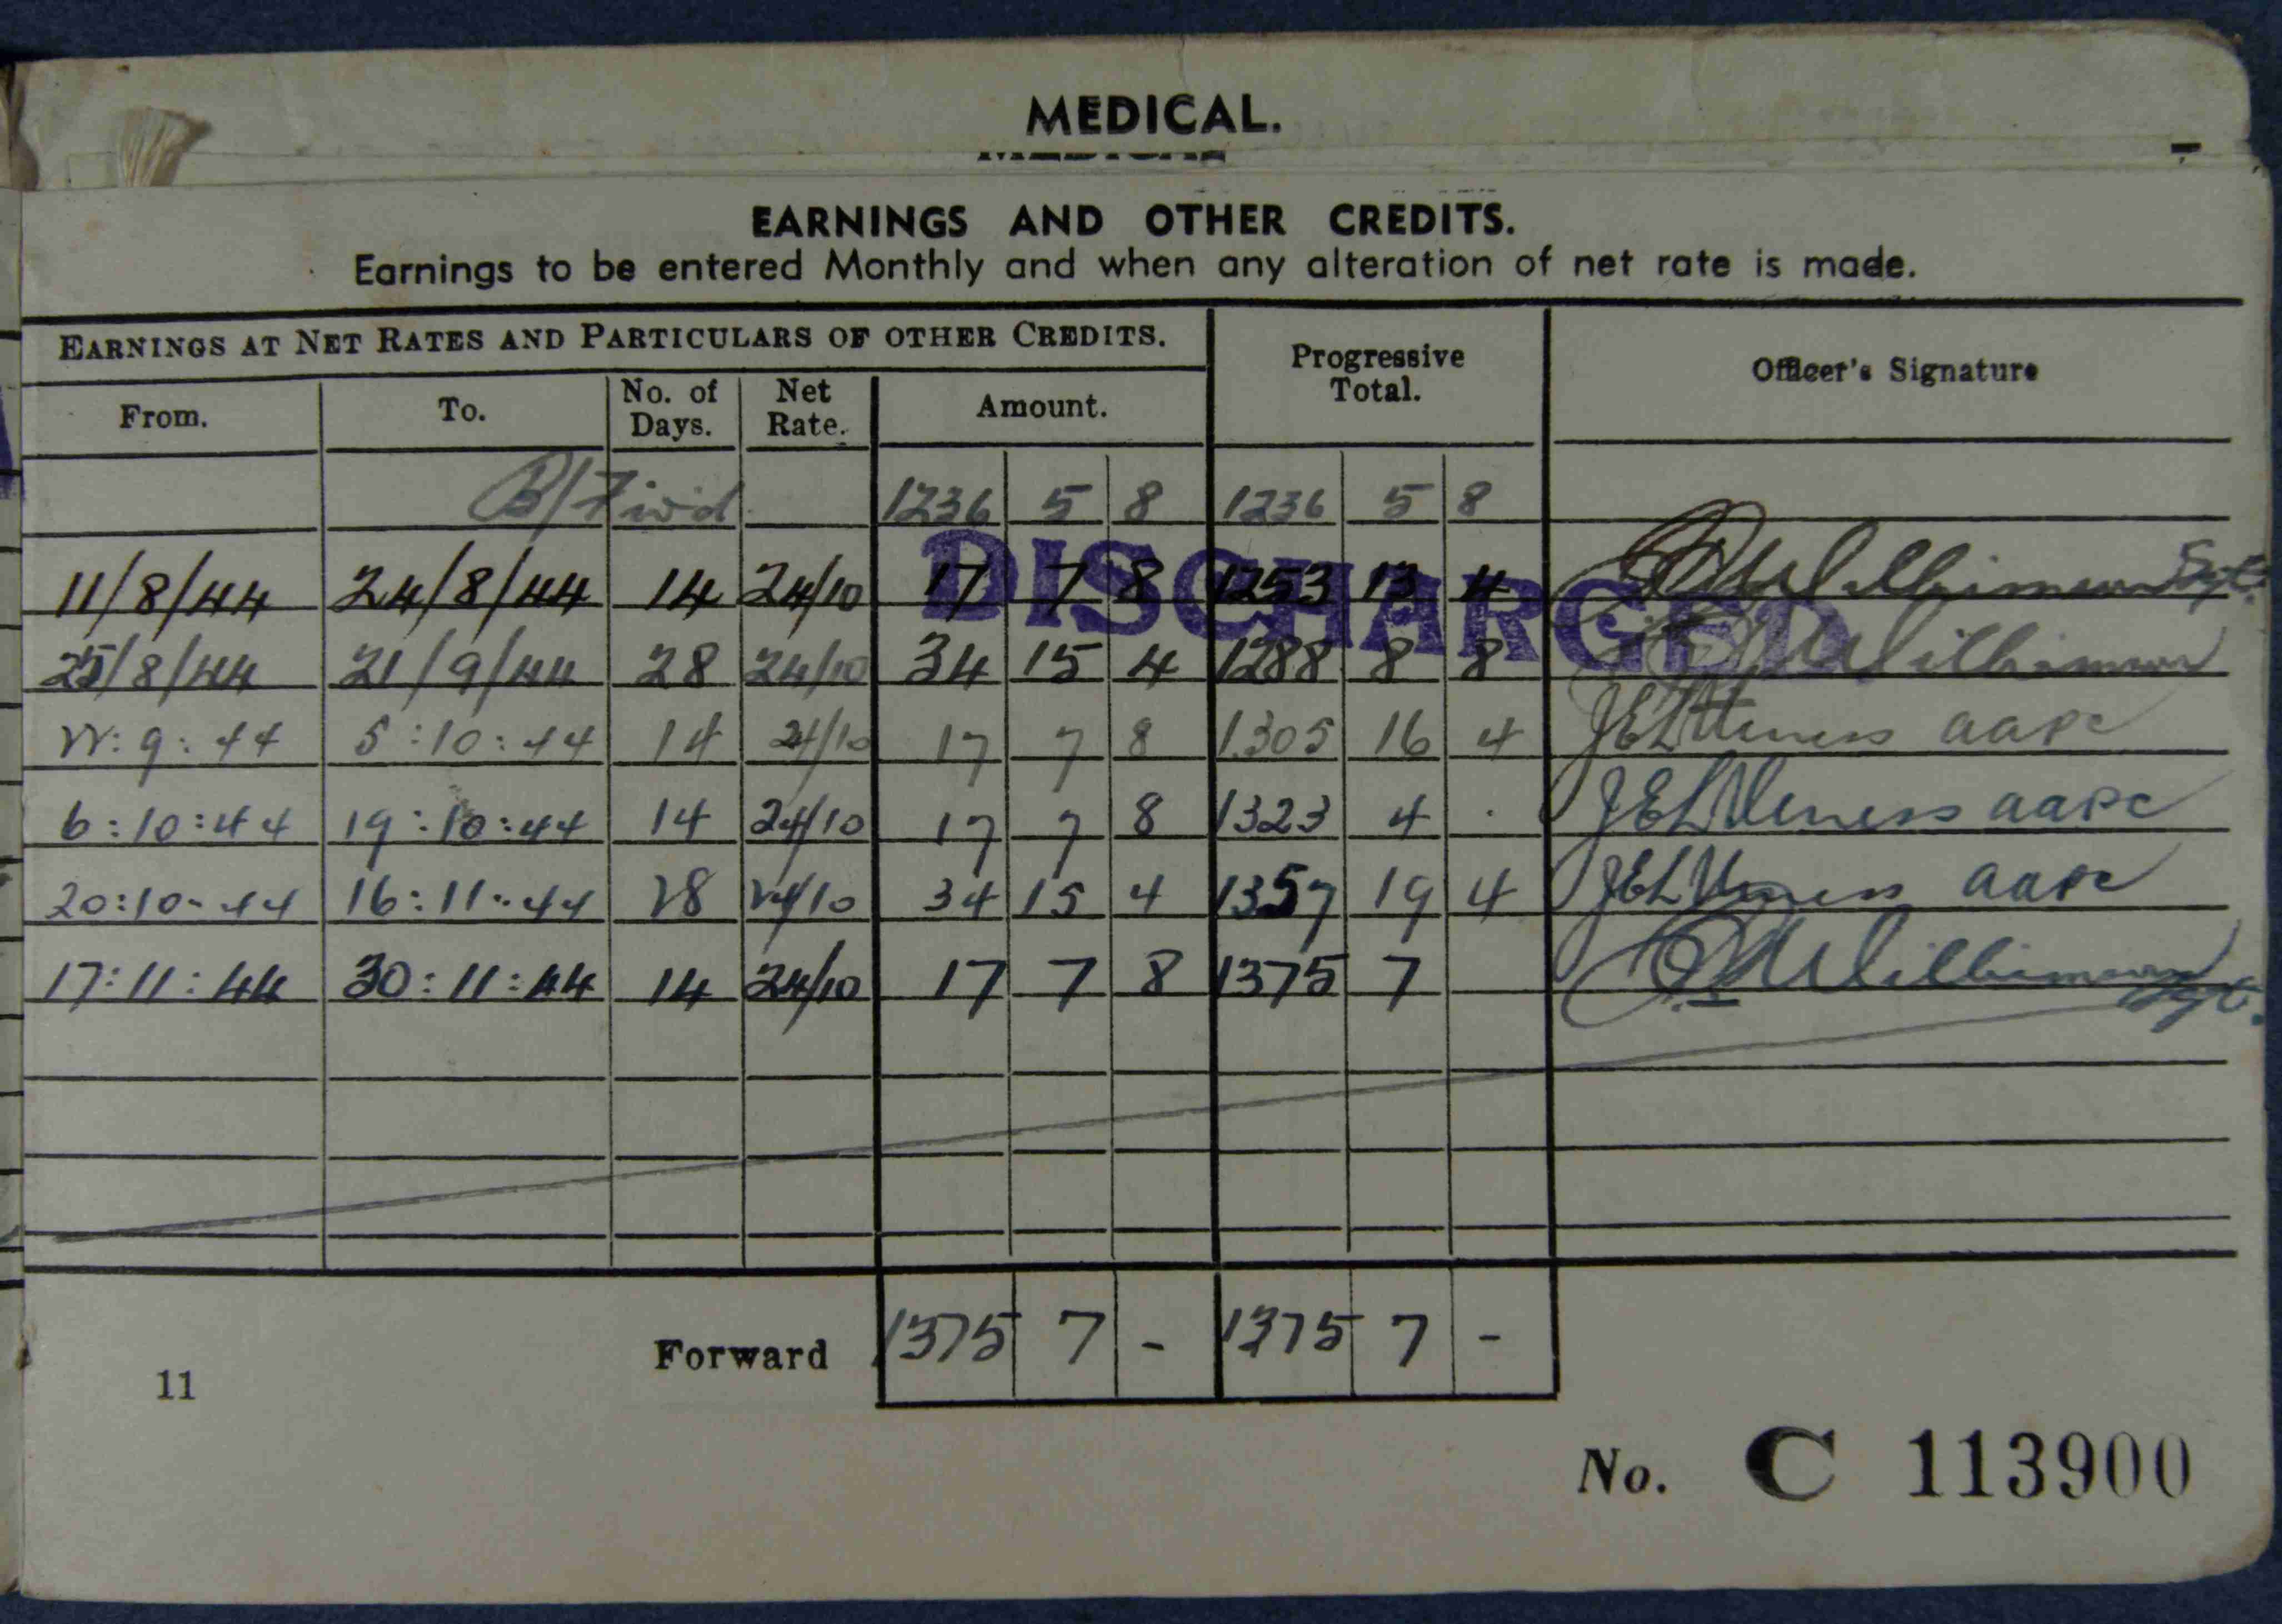 MEDICAL.
EARNINGS AND OTHER CREDITS.
Earnings to be entered Monthly and when any alteration of net rate is made.
EARNINGS AT NET RATES AND PARTICULARS OF OTHER CREDITS. Progressive Total. Officer's Signature
From. To. No. of Days. Net Rate. Amount.
B/Fwd 1236 5 8 1236 5 8
DISCHARGED
11/8/44 24/8/44 14 24/10 17 7 8 1253 13 4 Williamson Sgt.
25/8/44 21/9/44 28 24/10 34 15 4 1288 8 8 Williamson
22:9:44 5:10:44 14 24/10 17 7 8 1305 16 4 aapc
6:10:44 19:10:44 14 24/10 17 7 8 1323 4 . aapc
20:10:44 16:11:44 28 24/10 34 15 4 1357 19 4 aapc
17:11:44 30:11:44 14 24/10 17 7 8 1375 7 Williamson Sgt.
Forward 1375 7 - 1375 7 -
11
No. C 113900